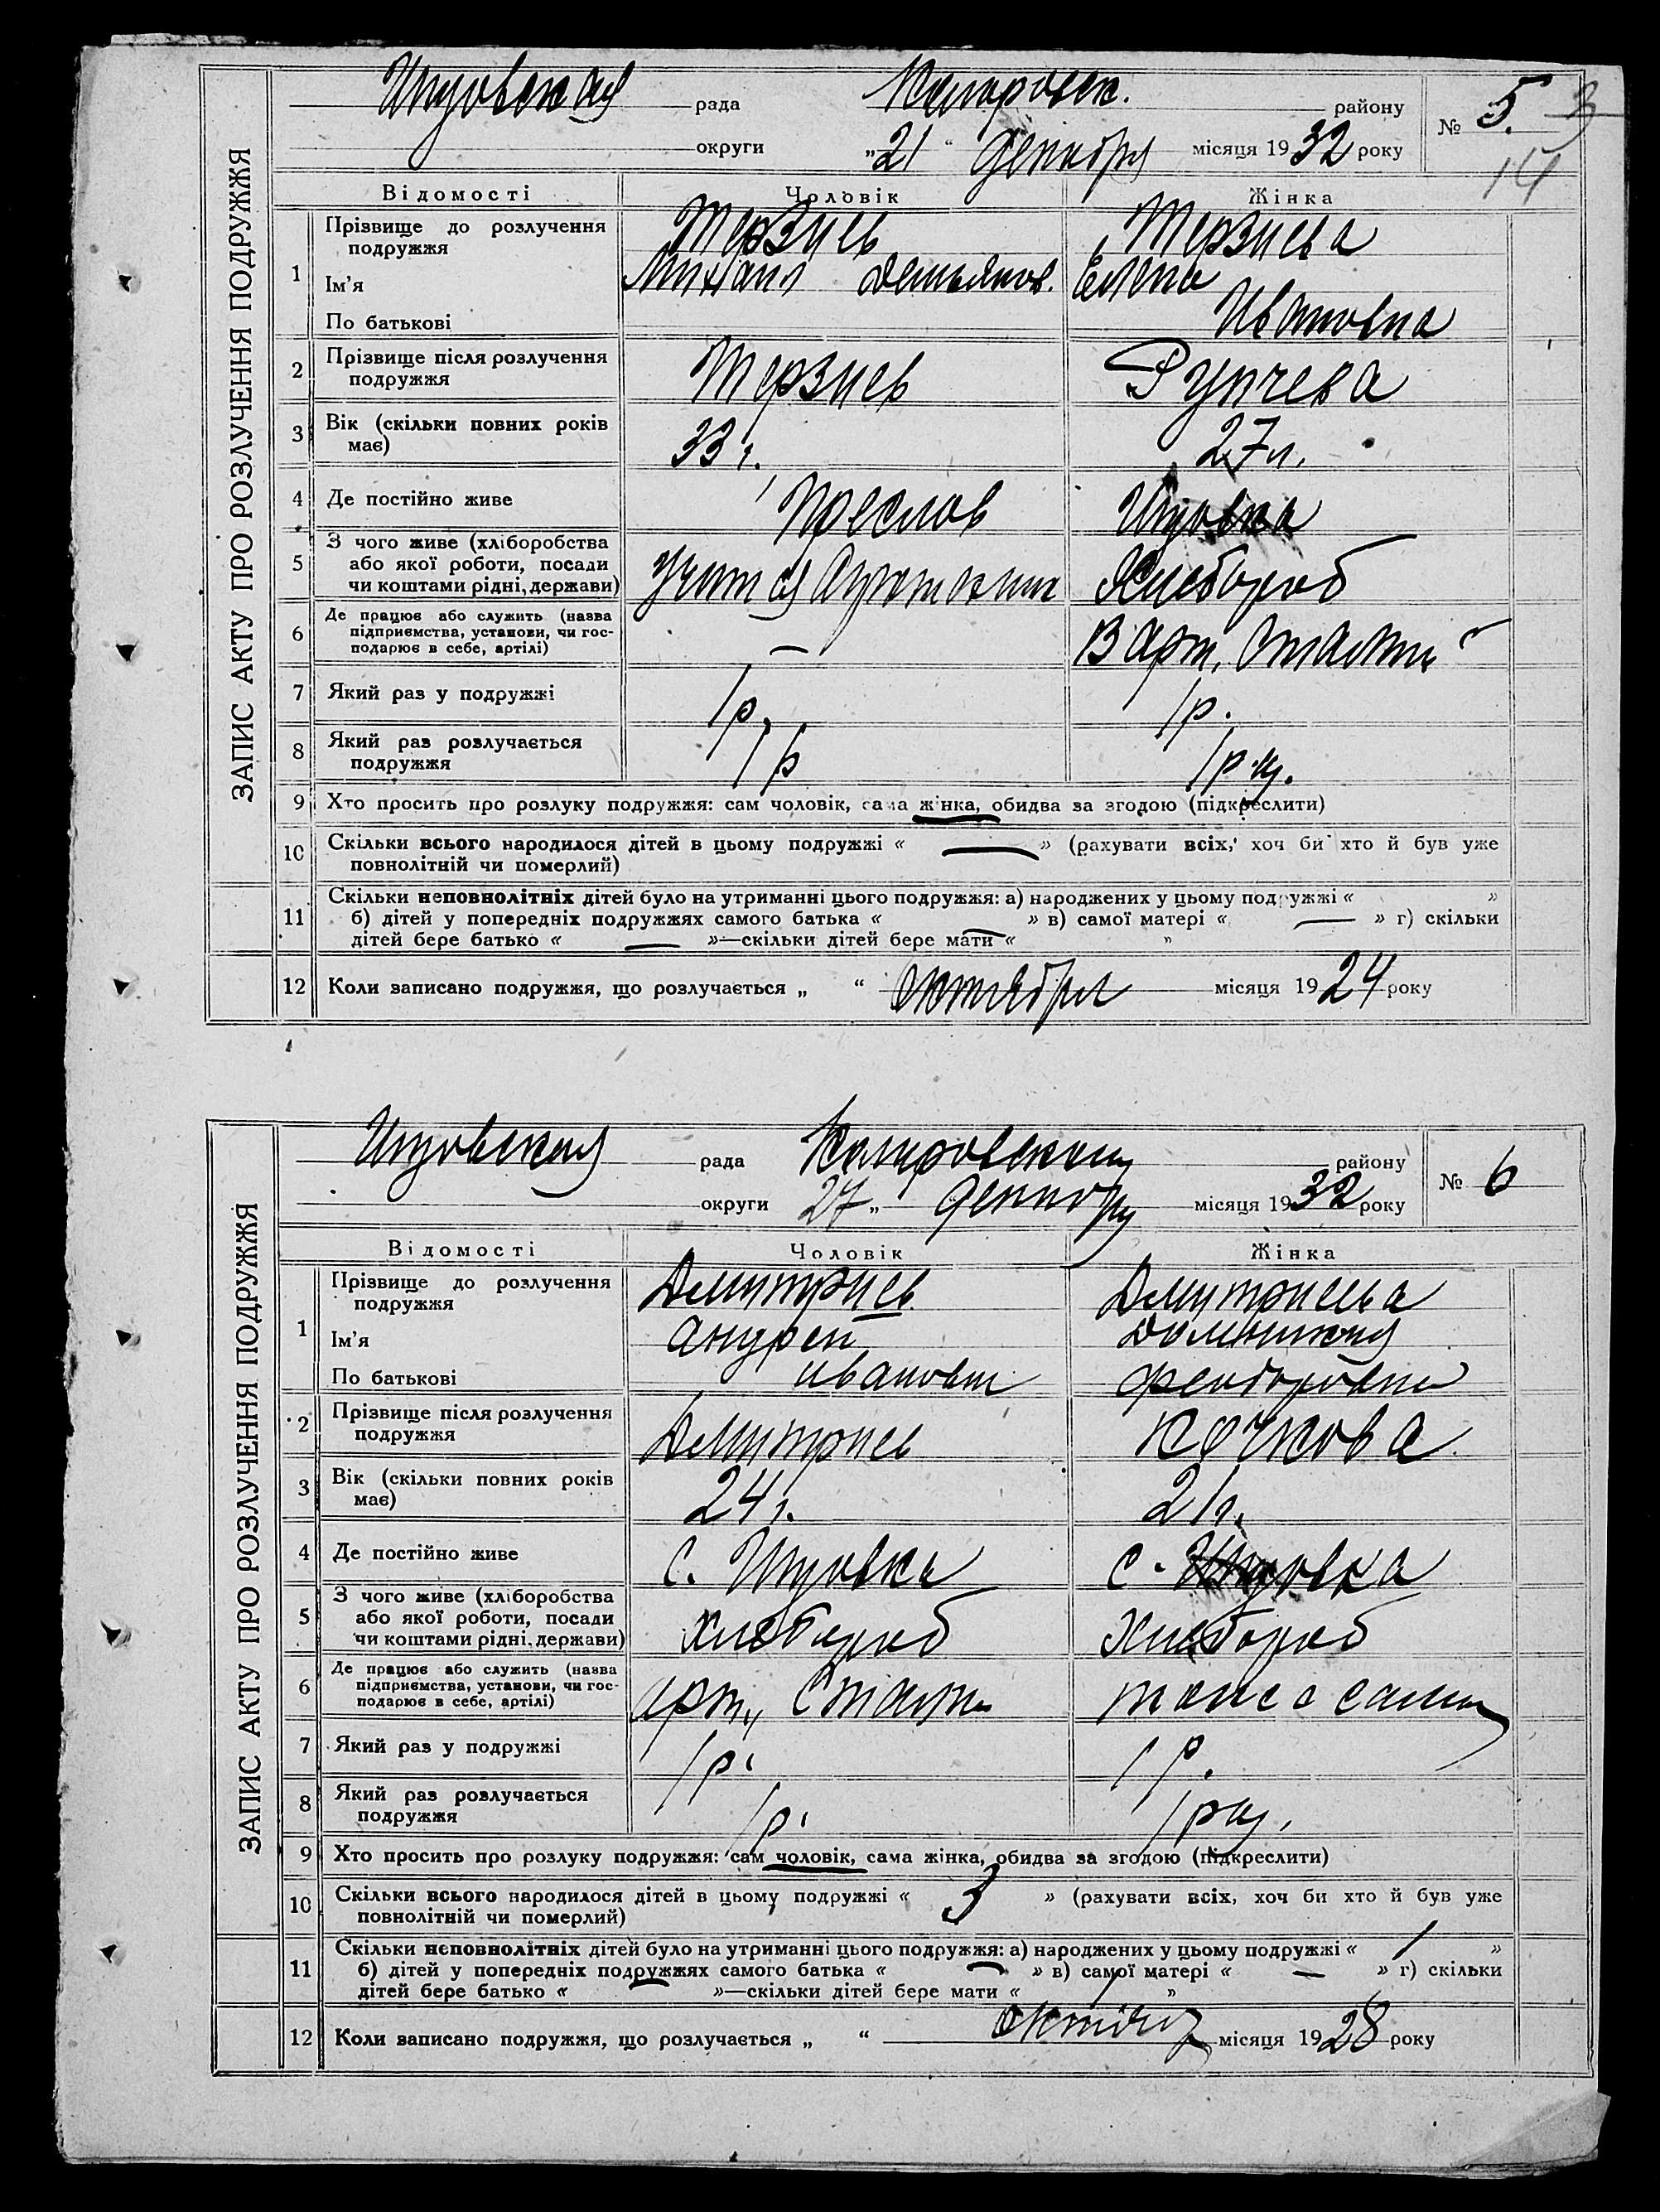 ЗАПИС АКТУ ПРО РОЗЛУЧЕННЯ ПОДРУЖЖЯ
рада району № 5. 3
округи „21“ декабря місяця 1932 року
14
Відомості Чоловік Жінка
1 Прізвище до розлучення подружжя Терзиев Терзиева
Ім'я Михаил Демьянов. Елена
По батькові Ивановна
2 Прізвище після розлучення подружжя Терзиев Рупчева
3 Вік (скільки повних років має) 33 г. 27 л.
4 Де постійно живе Преслов
5 З чого живе (хліборобства
або якої роботи, посади
чи коштами рідні, держави) Хлебороб
6 Де працює або служить (назва
підприємства, установи, чи гос-
подарює в себе, артілі) — В арт.
7 Який раз у подружжі 1 р. 1 р.
8 Який раз розлучається подружжя 1 р 1 раз.
9 Хто просить про розлуку подружжя: сам чоловік, сама жінка, обидва за згодою (підкреслити)
10 Скільки всього народилося дітей в цьому подружжі « — » (рахувати всіх, хоч би хто й був уже
повнолітній чи померлий)
11 Скільки неповнолітніх дітей було на утриманні цього подружжя: а) народжених у цьому подружжі « »
б) дітей у попередніх подружжях самого батька « — » в) самої матері « — » г) скільки
дітей бере батько « — »—скільки дітей бере мати « »
12 Коли записано подружжя, що розлучається „ “ октября місяця 1924 року
ЗАПИС АКТУ ПРО РОЗЛУЧЕННЯ ПОДРУЖЖЯ
рада району № 6
округи 27 „ місяця 1932 року
Відомості Чоловік Жінка
1 Прізвище до розлучення подружжя Дмитриев Дмитриева
Ім'я Андрей
По батькові Иванович Феодоровна
2 Прізвище після розлучення подружжя Дмитриев Кочкова
3 Вік (скільки повних років має) 24 г. 21 г.
4 Де постійно живе с. с.
5 З чого живе (хліборобства
або якої роботи, посади
чи коштами рідні, держави) хлебороб хлебороб
6 Де працює або служить (назва
підприємства, установи, чи гос-
подарює в себе, артілі) арт.
7 Який раз у подружжі 1 р. 1 р.
8 Який раз розлучається подружжя 1 р. 1 раз.
9 Хто просить про розлуку подружжя: сам чоловік, сама жінка, обидва за згодою (підкреслити)
10 Скільки всього народилося дітей в цьому подружжі « 3 » (рахувати всіх, хоч би хто й був уже
повнолітній чи померлий)
11 Скільки неповнолітніх дітей було на утриманні цього подружжя: а) народжених у цьому подружжі « 1 »
б) дітей у попередніх подружжях самого батька « — » в) самої матері « — » г) скільки
дітей бере батько « — »—скільки дітей бере мати « 1 »
12 Коли записано подружжя, що розлучається „ “ місяця 1928 року